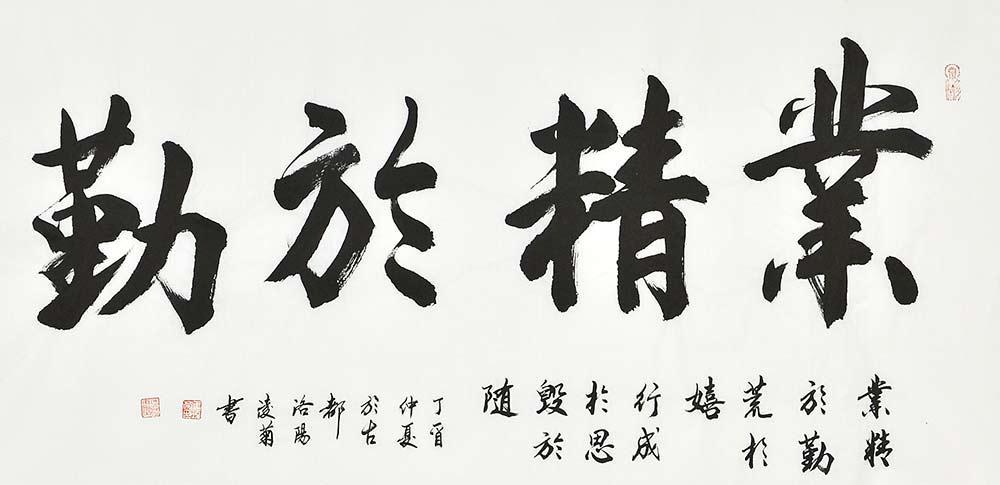 業精於勤
業精
於勤
荒於
嬉
行成
於思
毀於
随
丁酉
仲夏
於古
都
洛陽
凌菊
书